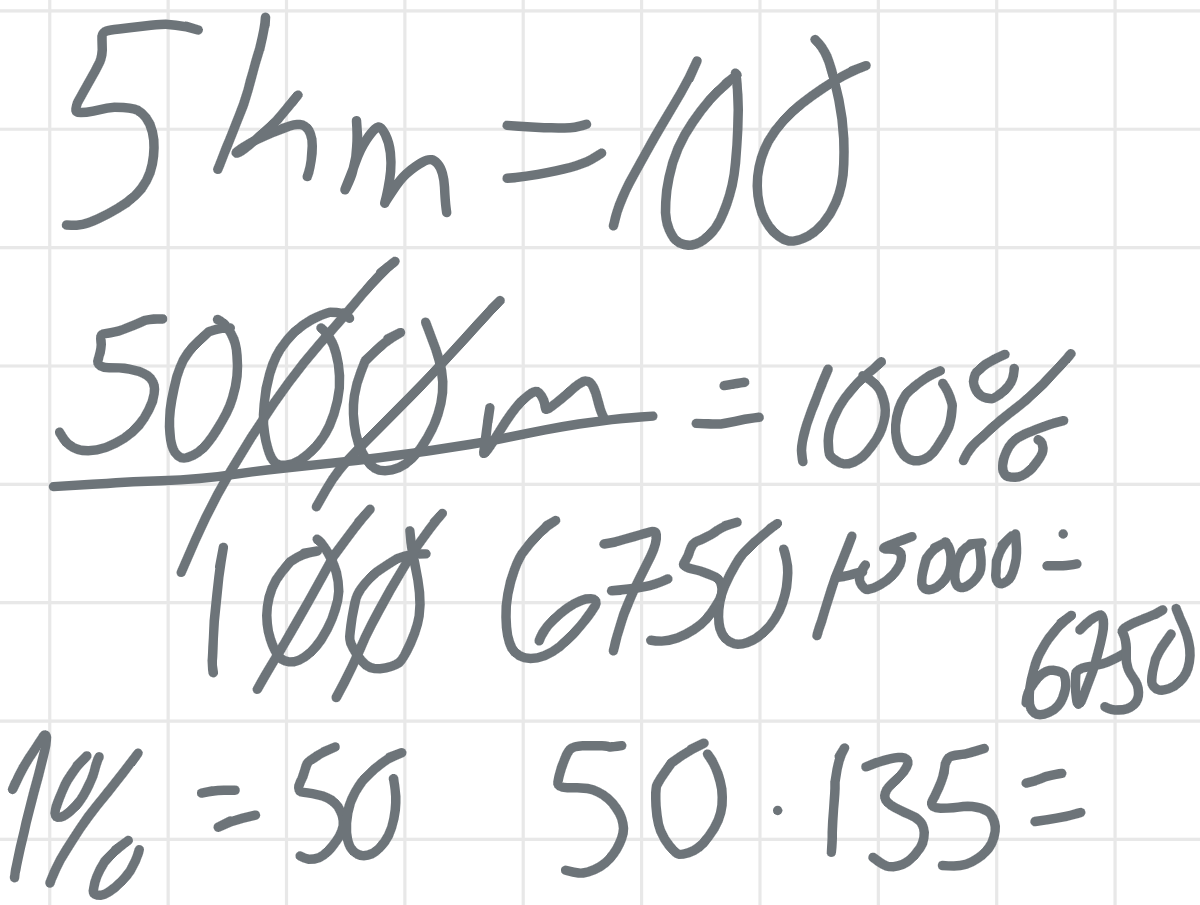 5 km = 100
5000 m = 100%
100 6750 m 5000 ÷
6750
1% = 50 50 · 135 =